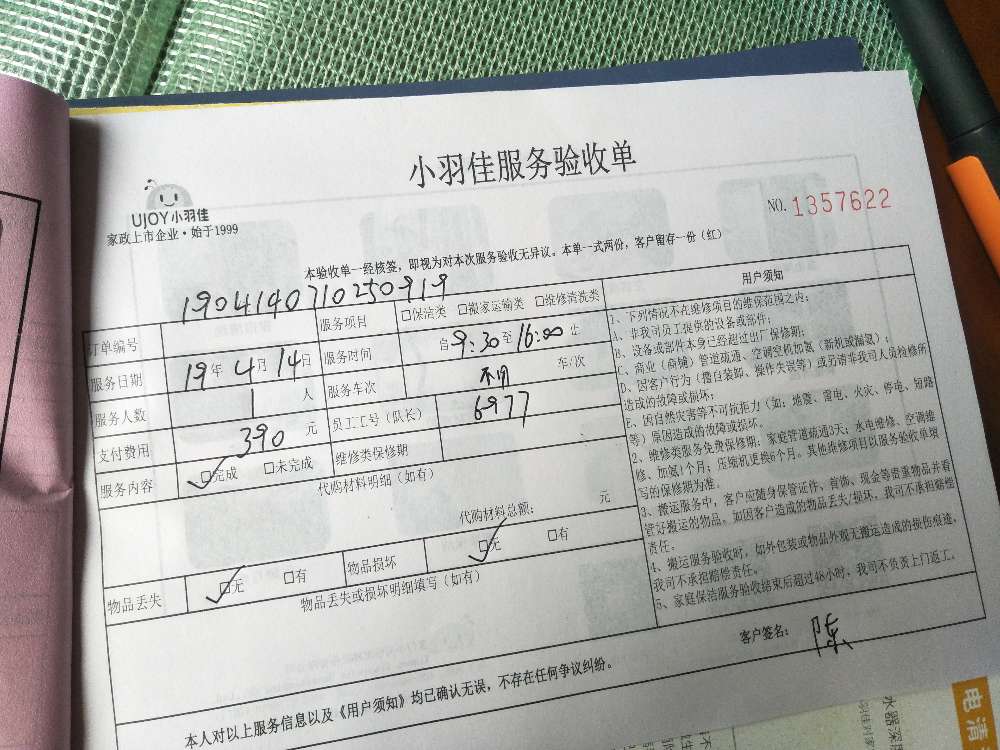 小羽佳服务验收单
UJOY小羽佳
家政上市企业·始于1999
NO. 1357622
本验收单一经核签，即视为对本次服务验收无异议。本单一式两份，客户留存一份（红）
订单编号 1904140710250919
服务项目 □保洁类 □搬家运输类 □维修清洗类
服务日期 19年4月14日
服务时间 自9:30至16:00止
服务人数 1人
服务车次 不用 车/次
支付费用 390元
员工工号（队长） 6977
服务内容 ☑完成 □未完成
维修类保修期
代购材料明细（如有）
代购材料总额： 元
物品丢失 ☑无 □有
物品损坏 ☑无 □有
物品丢失或损坏明细填写（如有）
用户须知
1、下列情况不在维修项目的维保范围之内：
A、非我司员工提供的设备或部件；
B、设备或部件本身已经超过出厂保修期；
C、商业（商铺）管道疏通、空调空机加氨（新机或漏氨）；
D、因客户行为（擅自装卸、操作失误等）或另请非我司人员检修所
造成的故障或损坏；
E、因自然灾害等不可抗拒力（如：地震、雷电、火灾、停电、短路
等）原因造成的故障或损坏。
2、维修类服务免费保修期：家庭管道疏通3天；水电维修、空调维
修、加氨1个月；压缩机更换6个月。其他维修项目以服务验收单填
写的保修期为准。
3、搬运服务中，客户应随身保管证件、首饰、现金等贵重物品并看
管好搬运的物品。如因客户造成的物品丢失/损坏，我司可不承担赔偿
责任。
4、搬运服务验收时，如外包装或物品外观无搬运造成的损伤痕迹，
我司可不承担赔偿责任。
5、家庭保洁服务验收结束后超过48小时，我司不负责上门返工。
客户签名： 陈
本人对以上服务信息以及《用户须知》均已确认无误，不存在任何争议纠纷。
电清
水器深